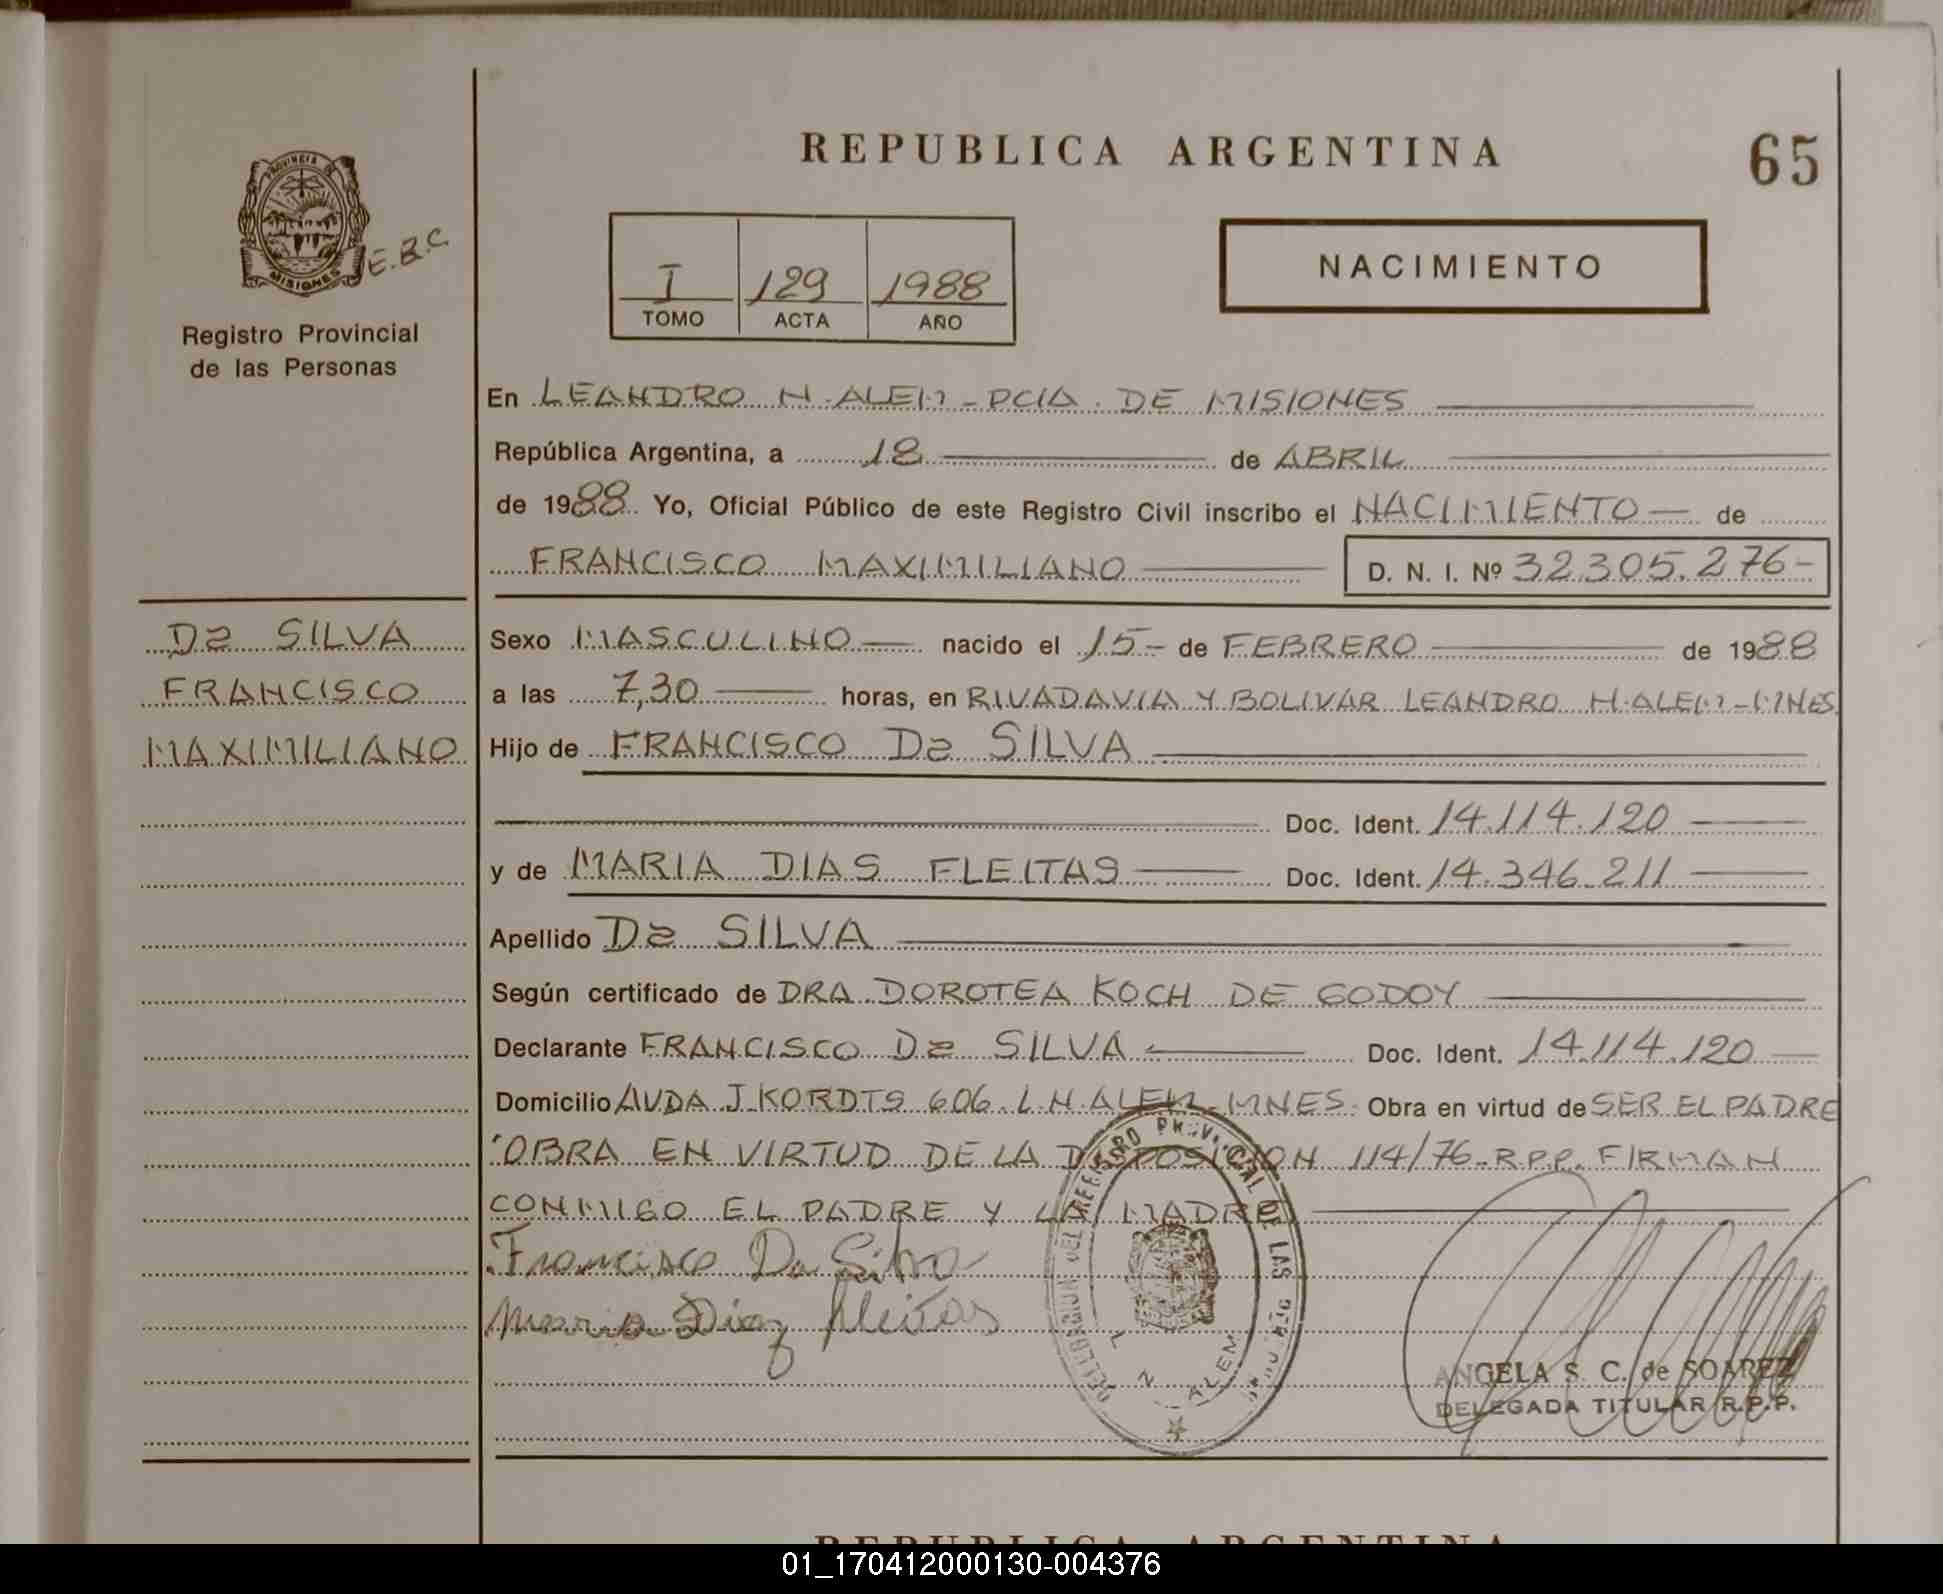 REPUBLICA ARGENTINA
65
PROVINCIA DE
MISIONES
E.B.C.
Registro Provincial
de las Personas
I 129 1988
TOMO ACTA AÑO
NACIMIENTO
En LEANDRO N. ALEM - PCIA. DE MISIONES
República Argentina, a 18 de ABRIL
de 1988 Yo, Oficial Público de este Registro Civil inscribo el NACIMIENTO de
FRANCISCO MAXIMILIANO D. N. I. Nº 32.305.276-
Da SILVA
FRANCISCO
MAXIMILIANO
Sexo MASCULINO nacido el 15- de FEBRERO de 1988
a las 7,30 horas, en RIVADAVIA Y BOLIVAR LEANDRO N. ALEM - MNES.
Hijo de FRANCISCO Da SILVA
Doc. Ident. 14.114.120
y de MARIA DIAS FLEITAS Doc. Ident. 14.346.211
Apellido Da SILVA
Según certificado de DRA. DOROTEA KOCH DE GODOY
Declarante FRANCISCO Da SILVA Doc. Ident. 14.114.120
Domicilio AVDA J. KORDTS 606. L.N. ALEM - MNES. Obra en virtud de SER EL PADRE
OBRA EN VIRTUD DE LA DISPOSICION 114/76-R.P.P. FIRMAN
CONMIGO EL PADRE Y LA MADRE
Francisco Da Silva
Maria Diaz fleitas
DELEGACION DEL REGISTRO PROVINCIAL DE LAS PERSONAS
L. N. ALEM
ANGELA S. C. de SOAREZ
DELEGADA TITULAR R.P.P.
REPUBLICA ARGENTINA
01_170412000130-004376